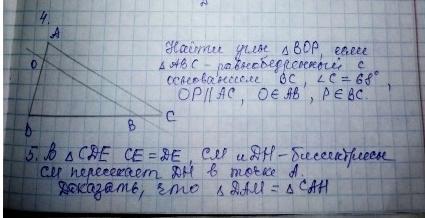 4.
A
O
Найти углы △BOP, если
△ABC - равнобедренный с
основанием BC, ∠C = 68°,
OP || AC, O ∈ AB, P ∈ BC.
C
B
5. В △CDE CE = DE, CM и DH - биссектрисы
CM пересекает DH в точке A.
Доказать, что △DAM = △CAH